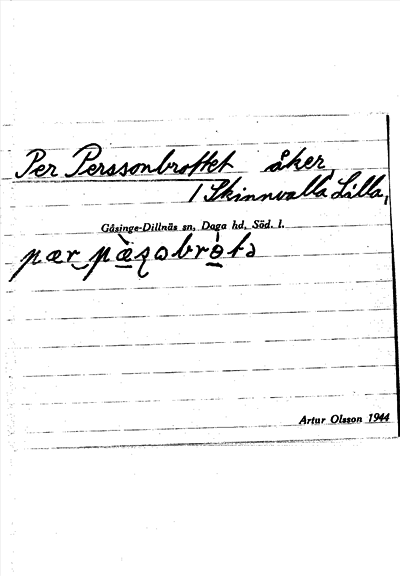 Per Perssonbrottet åker,
/ Skinnvalla Lilla,
Gåsinge-Dillnäs sn, Daga hd, Söd. l.
Artur Olsson 1944